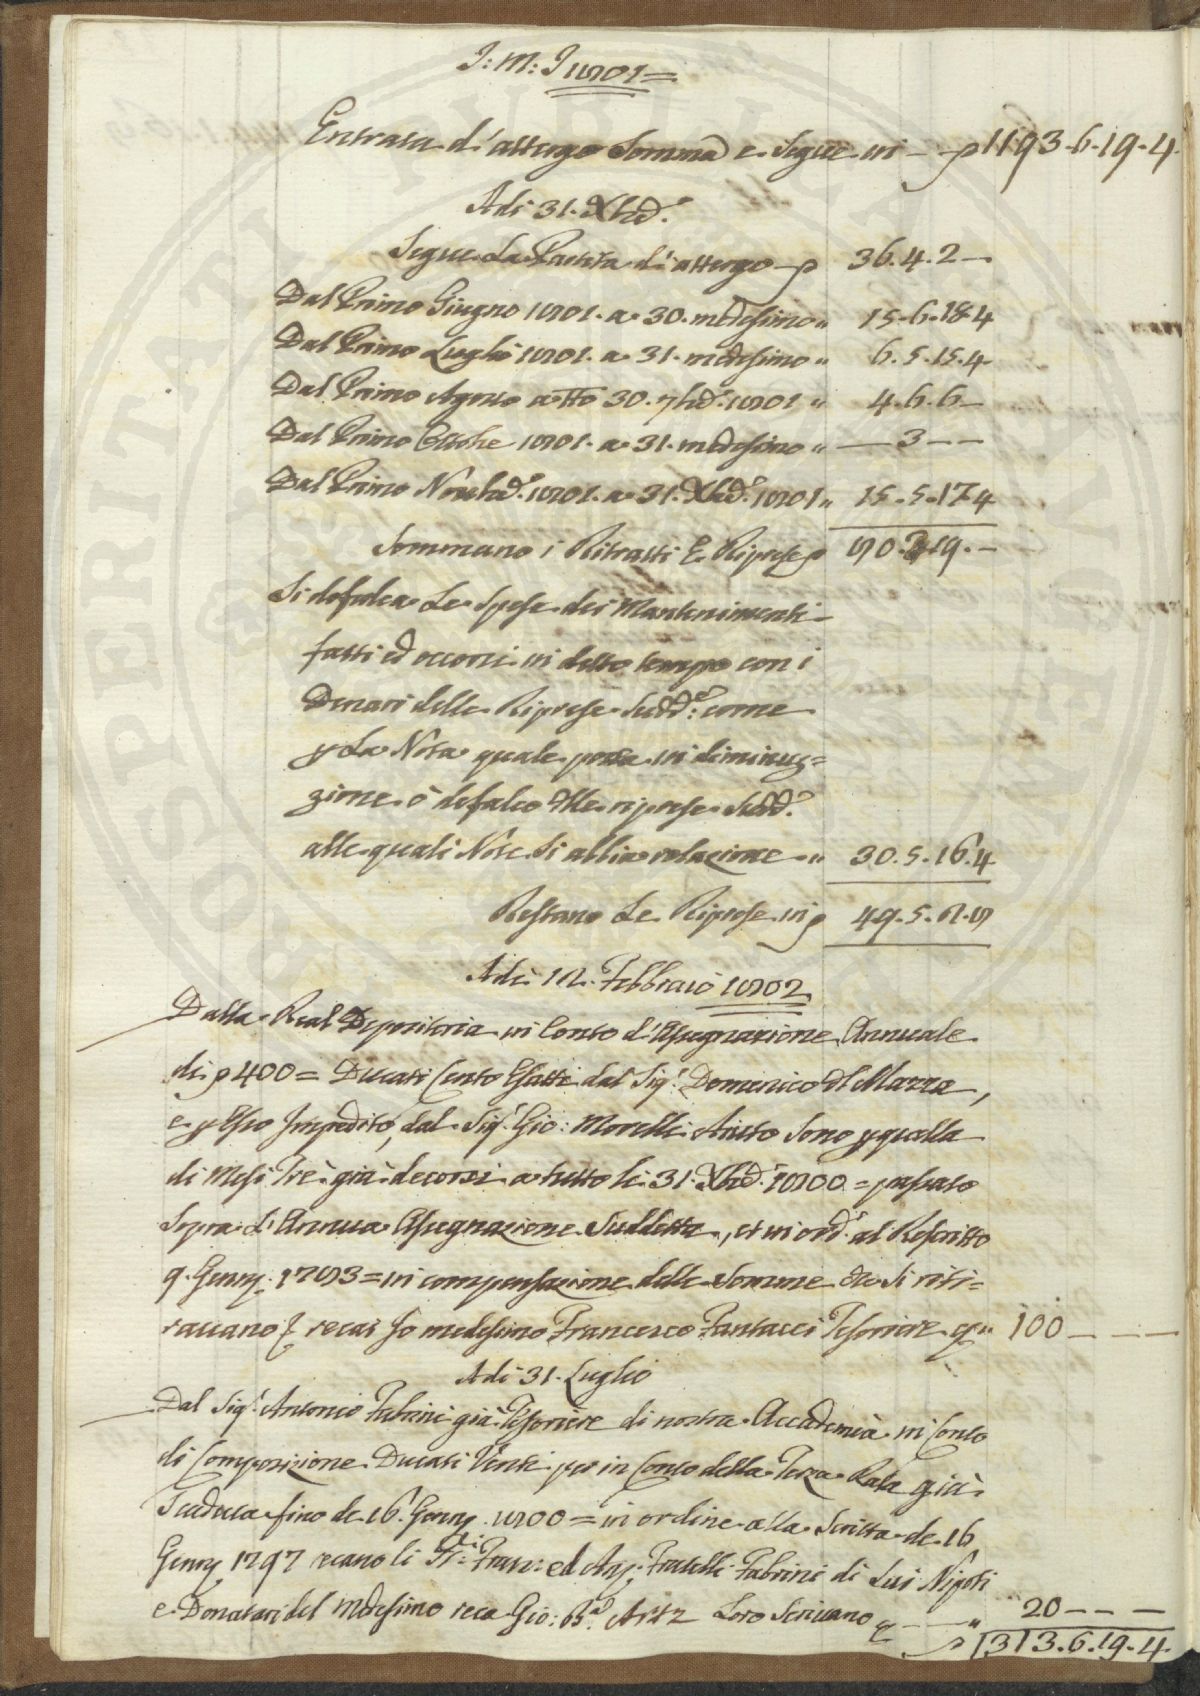 J: M: J 1801=
Entrata d'attergo Somma e Segue in — p 1193.6.19.4
Adi 31. Xbrẽ.
Segue La Partita d'attergo p 36.4.2—
Dal Primo Giugno 1801. a 30. medesimo " 15.6.18.4
Dal Primo Luglio 1801. a 31. medesimo " 6.5.15.4
Dal Primo Agosto a tto 30. 7bre. 1801 " 4.6.6—
Dal Primo Ottobre 1801. a 31. medesimo " —3——
Dal Primo Novebrẽ. 1801. a 31. Xbrẽ. 1801 " 15.5.17.4
Sommano i Ritratti E Riprese p 80. 19.—
Si defalca Le Spese dei Mantenimenti
fatti ed occorsi in detto tempo con i
Denari delle Riprese Sudde: come
p La Nota quale posta in diminuz=
zione ò defalco Alle riprese Sudd.e
alle quali Note Si abbia relazione " 30.5.16.4
Restano Le Riprese in p 49.5.2.8
Adi 12. Febbraio 1802
Dalla Real Depositeria in Conto d'Assegnazione Annuale
di p 400= Ducati Cento Esatti dal Sig.r Domenico Del Mazza,
e p Esso Impedito, dal Sig.r Gio: Morelli Aiuto Sono p quella
di Mesi Trè già decorsi a tutto li 31. Xbrẽ. 1800= passato
Sopra d'Annua Assegnazione Suddetta, et in ord.e al Rescritto
9. Genn. 1793= in compensazione delle Somme che Si riti=
raccano recai Io medesimo Francesco Fantacci Tesoriere " 100———
Adi 31. Luglio
Dal Sig.r Antonio Fabrini già Tesoriere di nostra Accademia in Conto
di Composizione Ducati Venti per in Conto della Terza Rata già
Scaduta fino de 16. Genn. 1800= in ordine alla Scritta de 16
Genn. 1797 recano li SS.ri Fran: ed Ang: Fratelli Fabrini di Lui Nipoti
e Donatari del Medesimo reca Gio: B.a Artz Loro Scrivano — " 20———
p 1313.6.19.4